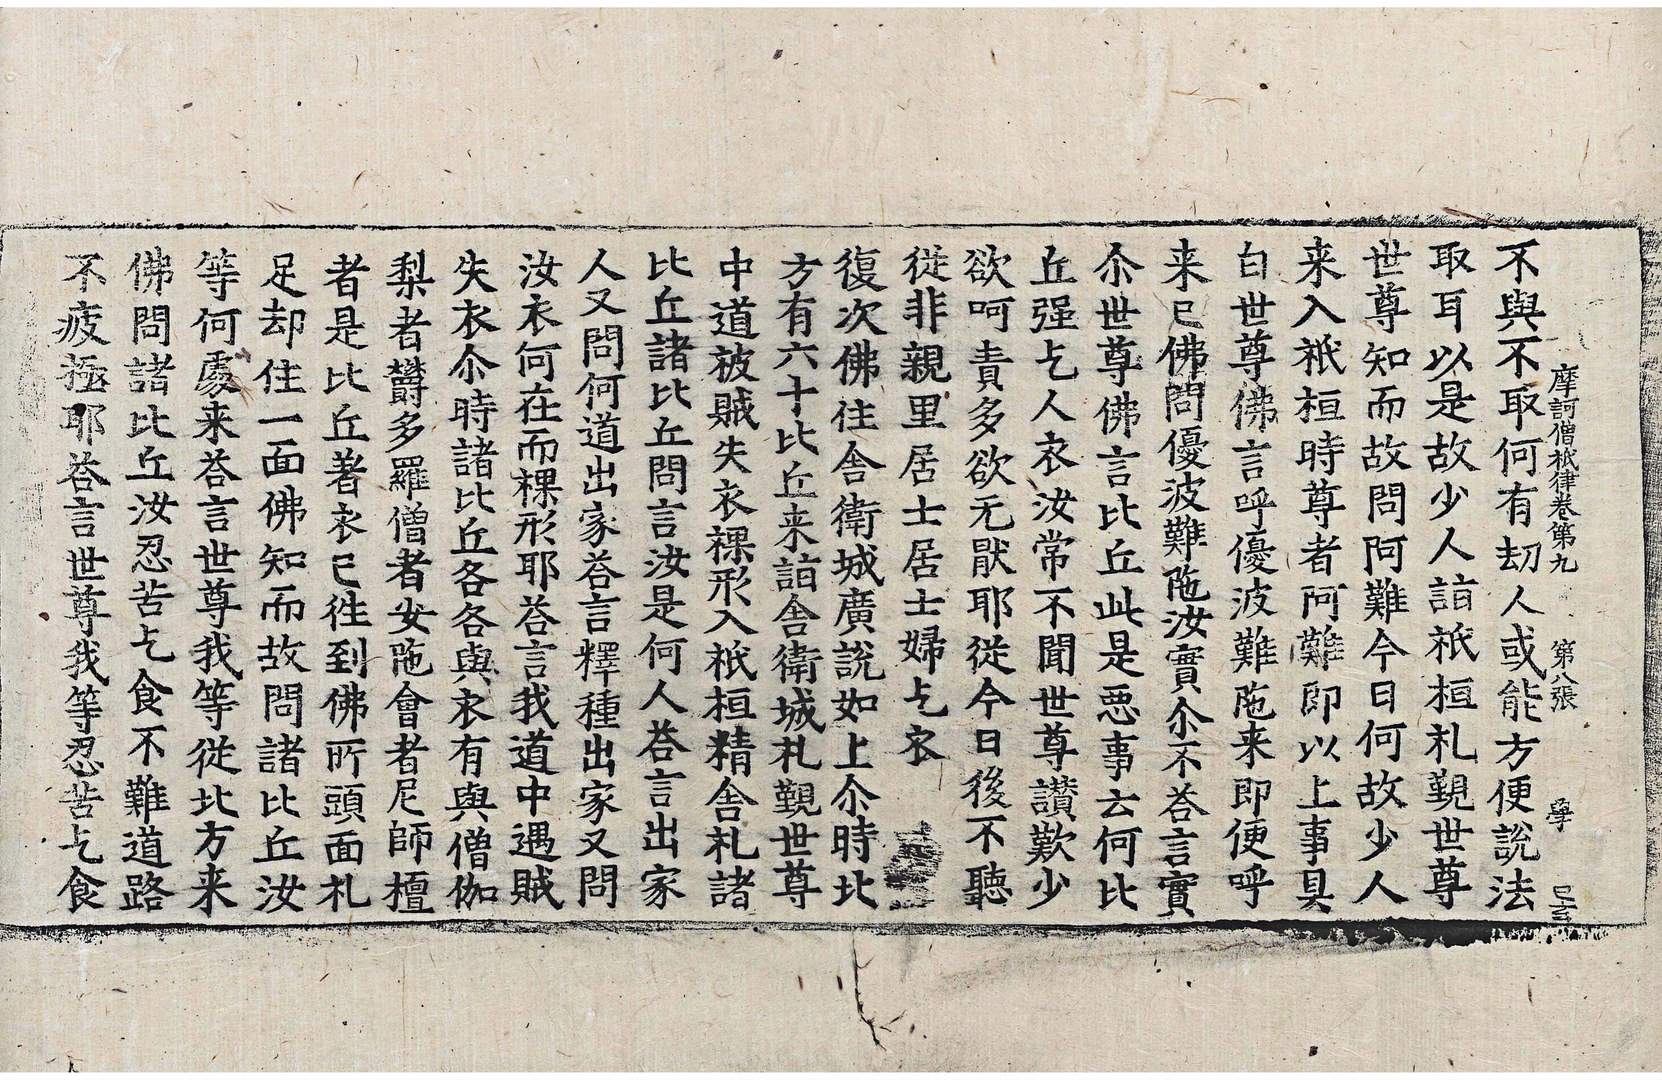 摩訶僧祇律卷第九 第八張 學
不與不取何有刧人或能方便說法
取耳以是故少人詣祇桓礼覲世尊
世尊知而故問阿難今日何故少人
来入祇桓時尊者阿難即以上事具
白世尊佛言呼優波難陁来即便呼
来已佛問優波難陁汝實尒不荅言實
尒世尊佛言比丘此是悪事云何比
丘强乞人衣汝常不聞世尊讃歎少
欲呵責多欲无猒耶従今日後不聽
從非親里居士居士婦乞衣
復次佛住舎衛城廣說如上尒時北
方有六十比丘来詣舎衛城礼覲世尊
中道被賊失衣裸形入祇桓精舎礼諸
比丘諸比丘問言汝是何人荅言出家
人又問何道出家荅言釋種出家又問
汝衣何在而裸形耶荅言我道中遇賊
失衣尒時諸比丘各各與衣有與僧伽
梨者欝多羅僧者安陁會者尼師檀
者是比丘著衣已徃到佛所頭面礼
足却住一面佛知而故問諸比丘汝
等何處来荅言世尊我等従北方来
佛問諸比丘汝忍苦乞食不難道路
不疲極耶荅言世尊我等忍苦乞食